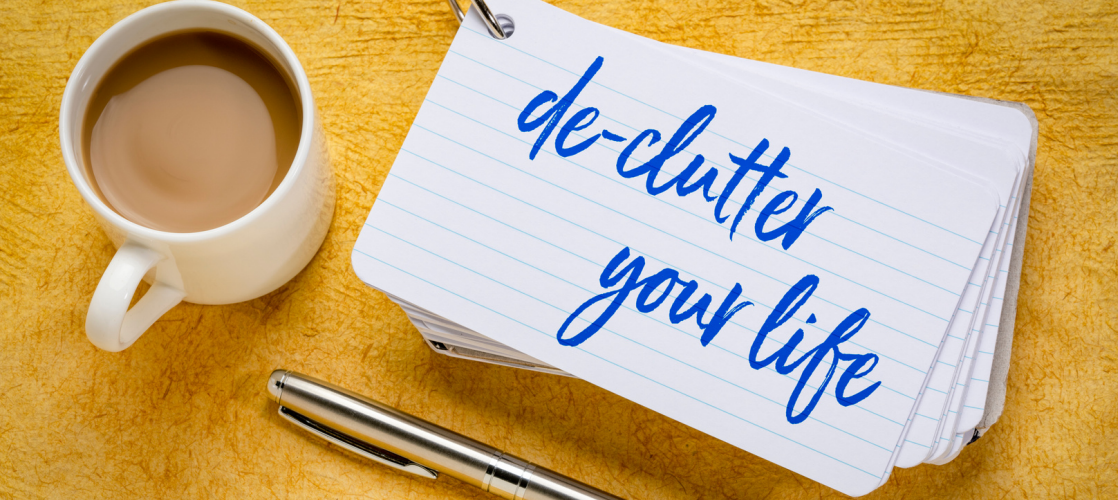 de-clutter
your life